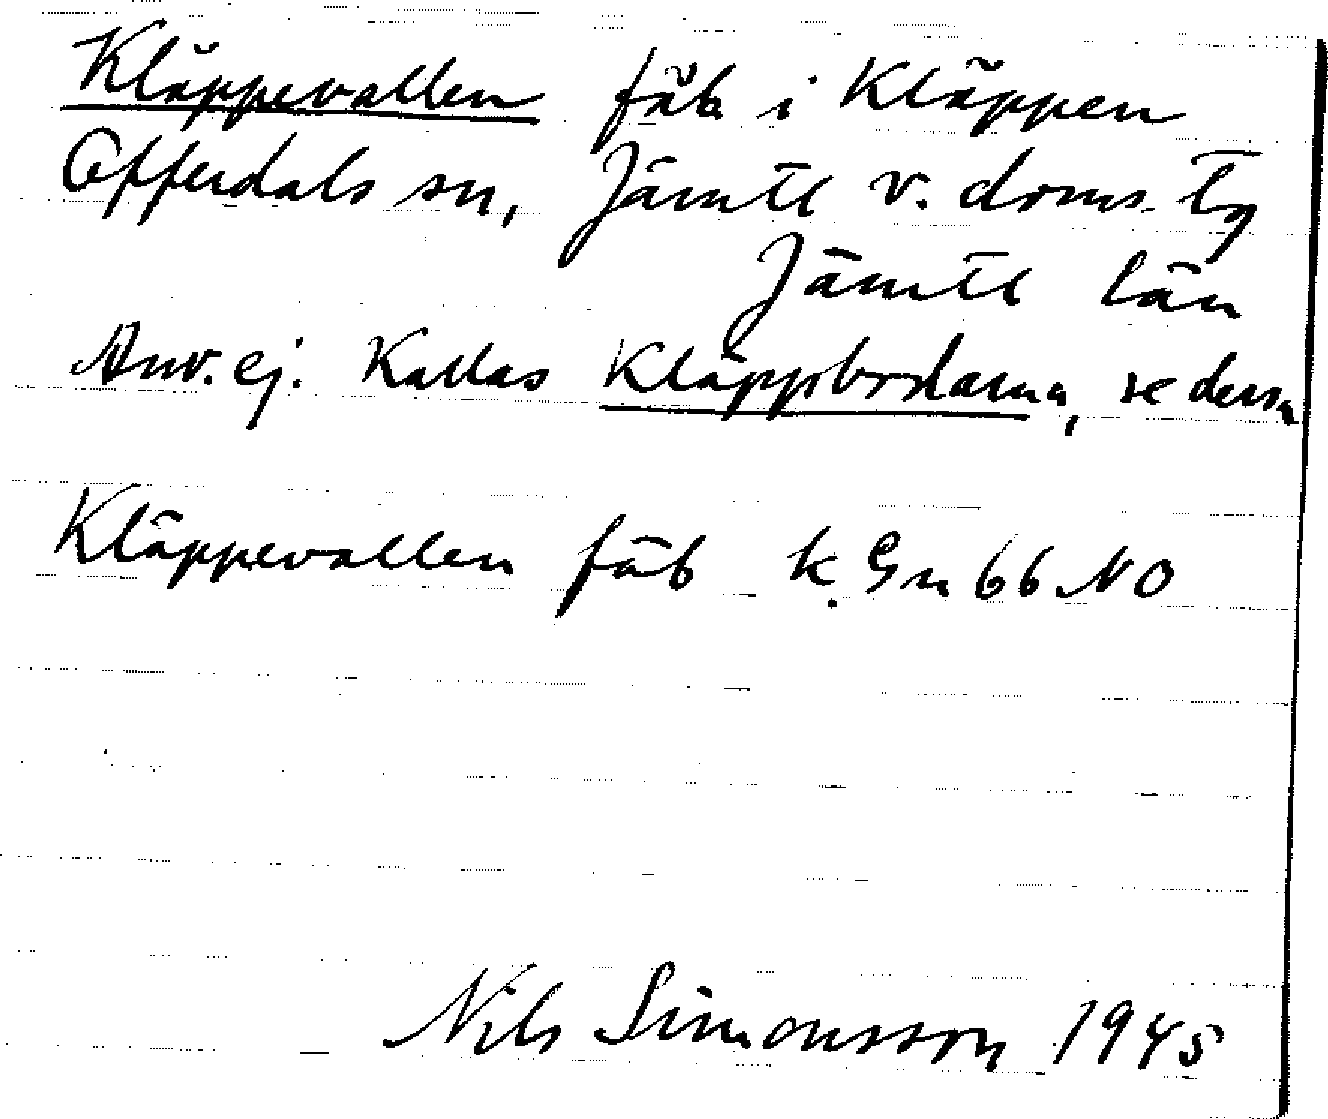 Kläppevallen fäb i Kläppen
Offerdals sn, Jämtl v. doms. tg
Jämtl län
Anv. ej. Kallas Kläppbodarna, se dessa
Kläppevallen fäb k. Gn 66 NO
Nils Simonsson 1945